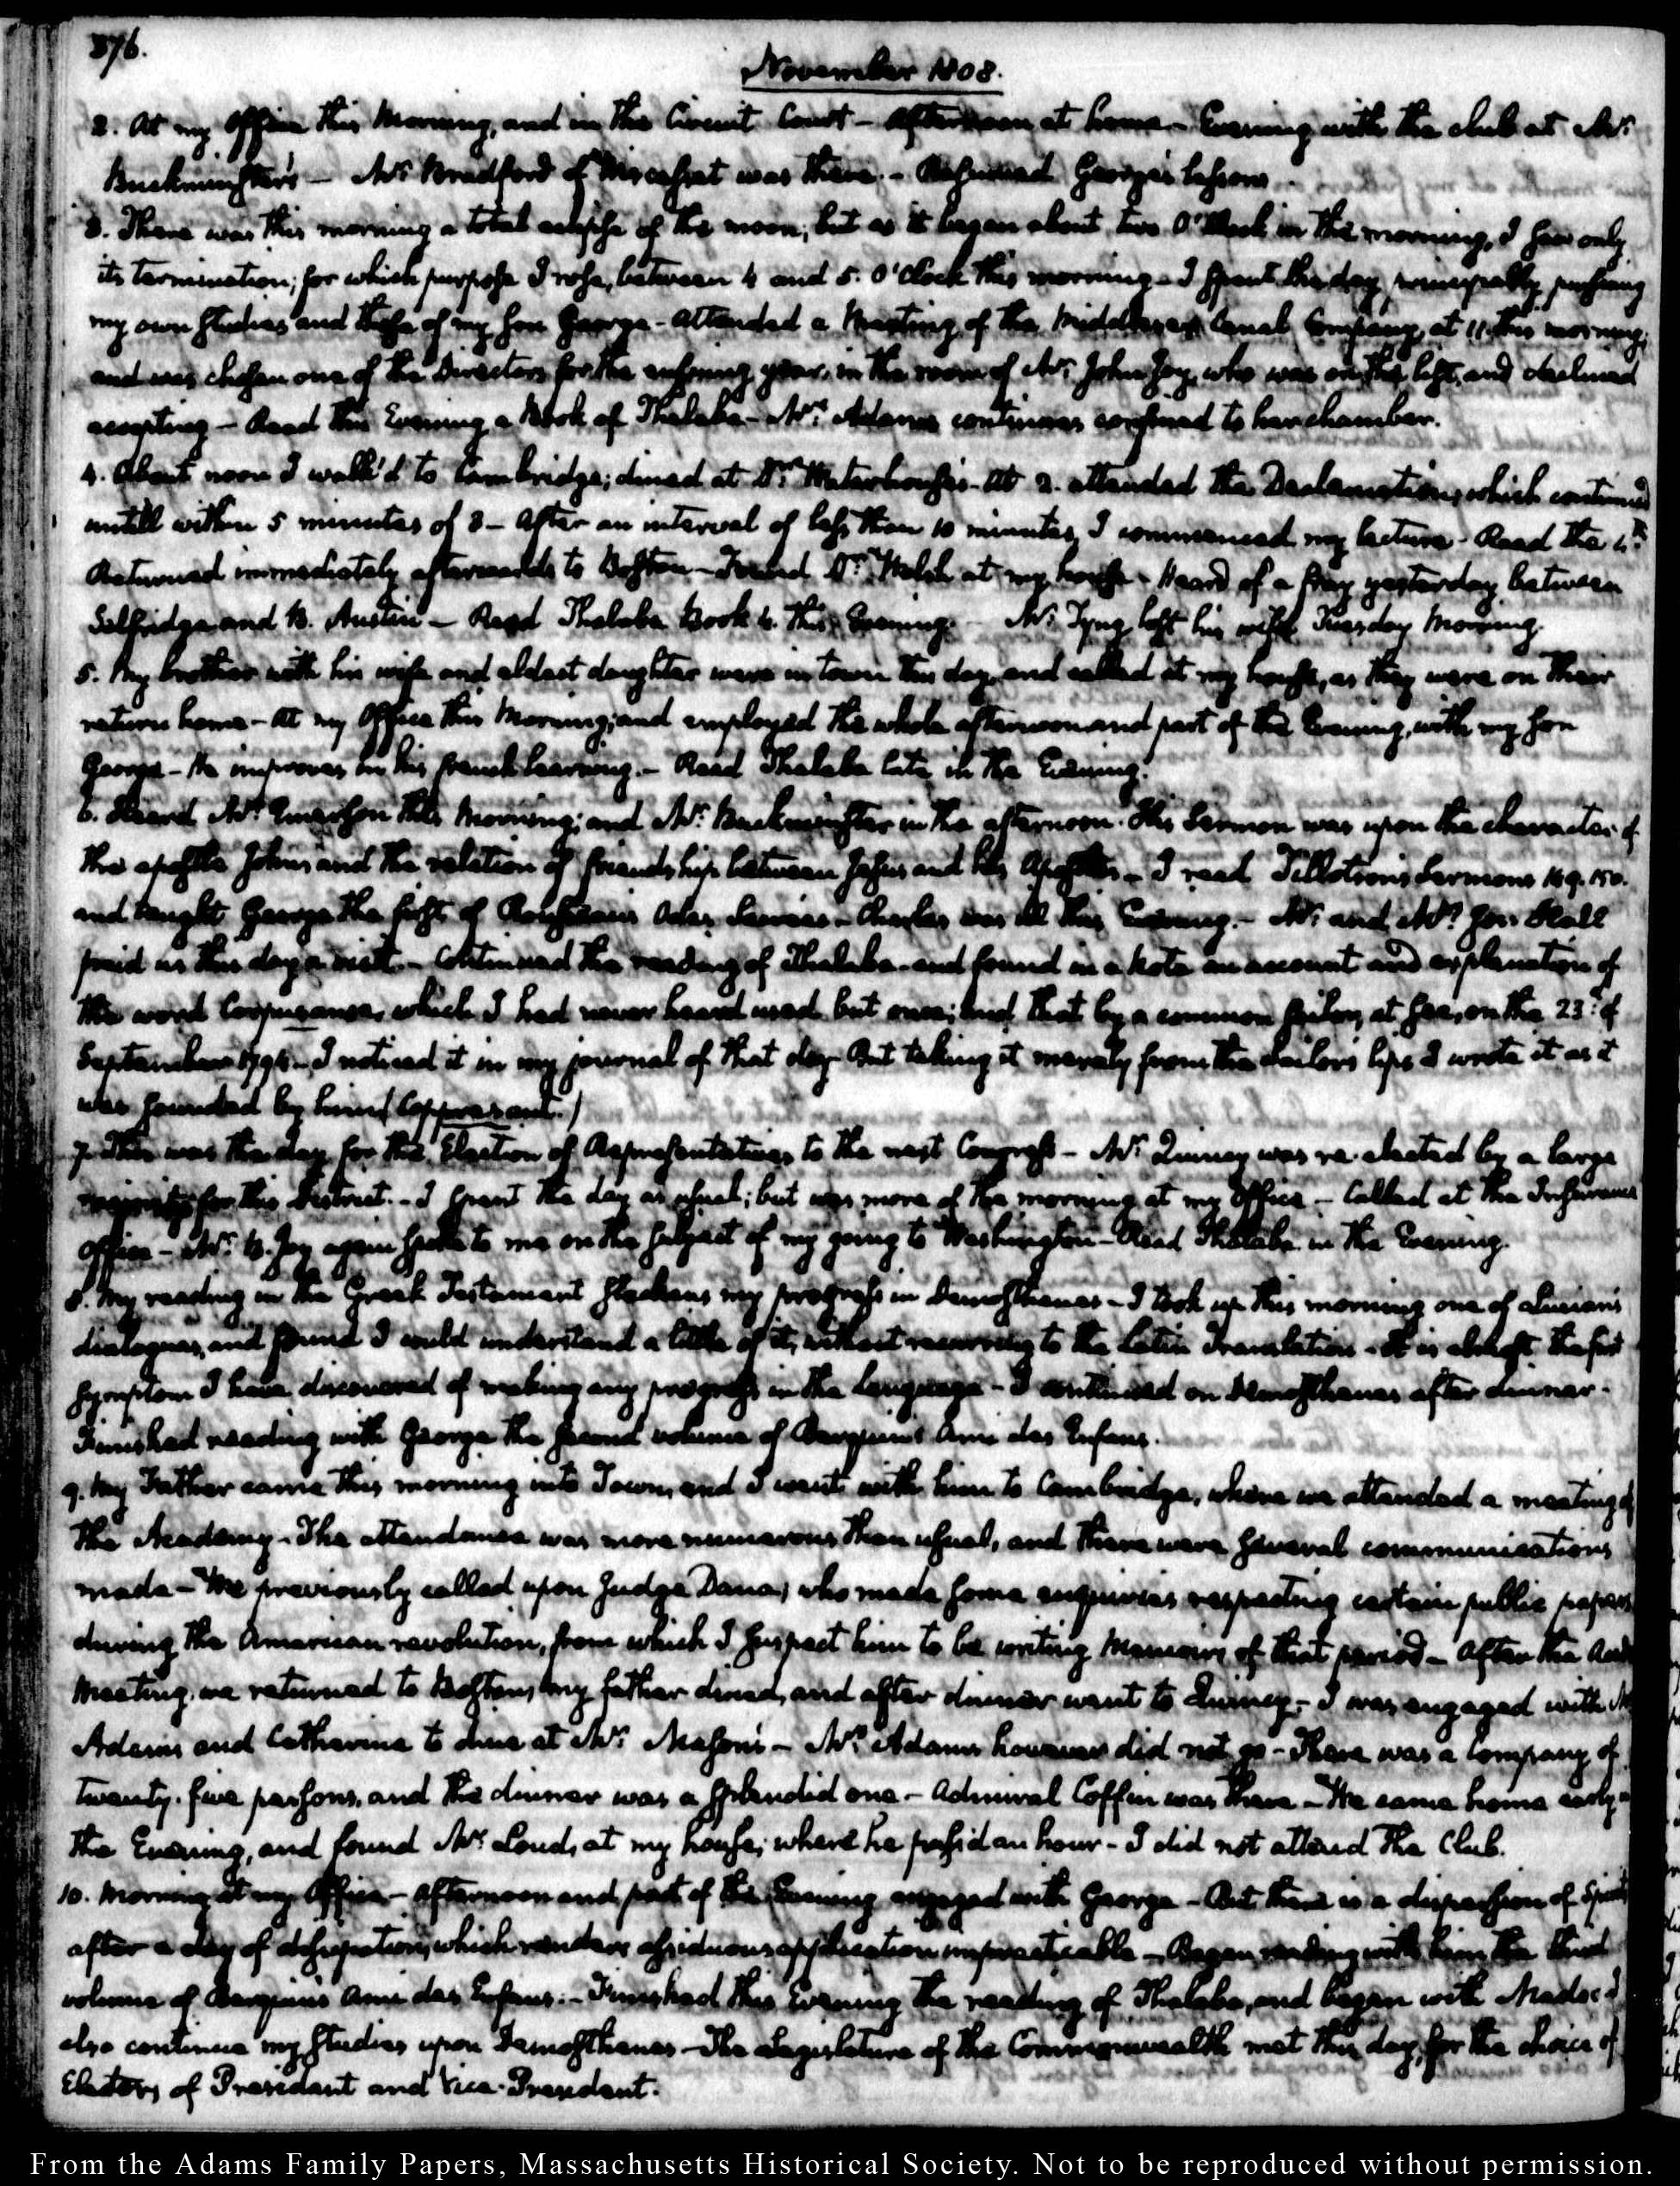 376.
November 1808.
2. At my Office this Morning, and in the Circuit Court – Afternoon at home – Evening with the club at Mr.
Buckminster's – Mr. Bradford of Wiscasset was there. – Resumed George's lessons.
3. There was this morning a total eclipse of the moon, but as it began about two O'Clock in the morning, I saw only
its termination; for which purpose I rose, between 4 and 5. O'Clock this morning – I spent the day, principally pursuing
my own studies and those of my son George – attended a Meeting of the Middlesex Canal Company, at 11 this morning;
and was chosen one of the Directors for the ensuing year, in the room of Mr. John Joy, who was on the list, and declined
accepting – Read this Evening a Book of Thalaba – Mrs. Adams continues confined to her chamber.
4. About noon I walk'd to Cambridge; dined at Dr. Waterhouse's. At 2. attended the Declamations, which continued
untill within 5 minutes of 3 – After an interval of less than 10 minutes, I commenced my lecture – Read the
Returned immediately afterwards to Boston – Found Dr. Welsh at my house – Heard of a fray yesterday between
Selfridge and B. Austin – Read Thalaba Book 4. this Evening. – Mr. Tyng lost his wife Tuesday Morning.
5. My brother with his wife and eldest daughter were in town this day, and called at my house, as they were on their
return home – At my Office this Morning; and employed the whole afternoon and part of the Evening, with my son
George – He improves in his french learning. – Read Thalaba late in the Evening.
6. Heard Mr. Emerson this Morning; and Mr. Buckminster in the afternoon. His Sermon was upon the character of
the apostle John; and the relation of friendship between Jesus and his Apostles – I read Tillotson's Sermons 149. 150.
and taught George the first of Rousseau's Odes – Charles was ill this Evening. – Mr. and Mrs. Jos: Hall
paid us this day a visit. – Continued the reading of Thalaba – and found in a Note an account and explanation of
the word Corpusanse, which I had never heard used but once; and that by a common sailor, at sea, on the 23d. of
September 1794 – I noticed it in my journal of that day. But taking it merely from the sailor's lips I wrote it as it
was sounded by him (Copperzant.)
7. This was the day for the Election of Representatives to the next Congress – Mr. Quincy was re-elected by a large
majority for this District. – I spent the day as usual; but was more of the morning at my Office. – Called at the Insurance
Office – Mr. B. Joy again spoke to me on the subject of my going to Washington – Read Thalaba in the Evening.
8. My reading in the Greek Testament slackens my progress in Demosthenes – I took up this morning one of Lucian's
dialogues, and found I could understand a little of it, without recurring to the Latin Translation – It is almost the first
symptom I have discovered of making any progress in the language – I continued on Demosthenes after dinner.
Finished reading with George the second volume of Berquin's Ami des Enfans.
9. My Father came this morning into Town, and I went with him to Cambridge, where we attended a meeting of
the Academy – The attendance was more numerous than usual, and there were several communications
made – We previously called upon Judge Dana, who made some enquiries respecting certain public papers
during the American revolution, from which I suspect him to be writing Memoirs of that period – After the
Meeting, we returned to Boston; my father dined, and after dinner went to Quincy. – I was engaged with
Adams and Catherine to dine at Mr. Mason's – Mrs. Adams however did not go – There was a Company of
twenty-five persons, and the dinner was a splendid one – Admiral Coffin was there – We came home early
the Evening, and found Mr. Loud, at my house; where he pass'd an hour – I did not attend the Club.
10. Morning at my Office – Afternoon and part of the Evening engaged with George – But there is a dispersion of
after a day of dissipation, which renders assiduous application impracticable – Began reading with him the third
volume of Berquin's Ami des Enfans. – Finished this Evening the reading of Thalaba, and began with Madoc I
also continue my studies upon Demosthenes – The Legislature of the Commonwealth met this day, for the choice of
Electors of President and Vice-President.
From the Adams Family Papers, Massachusetts Historical Society. Not to be reproduced without permission.